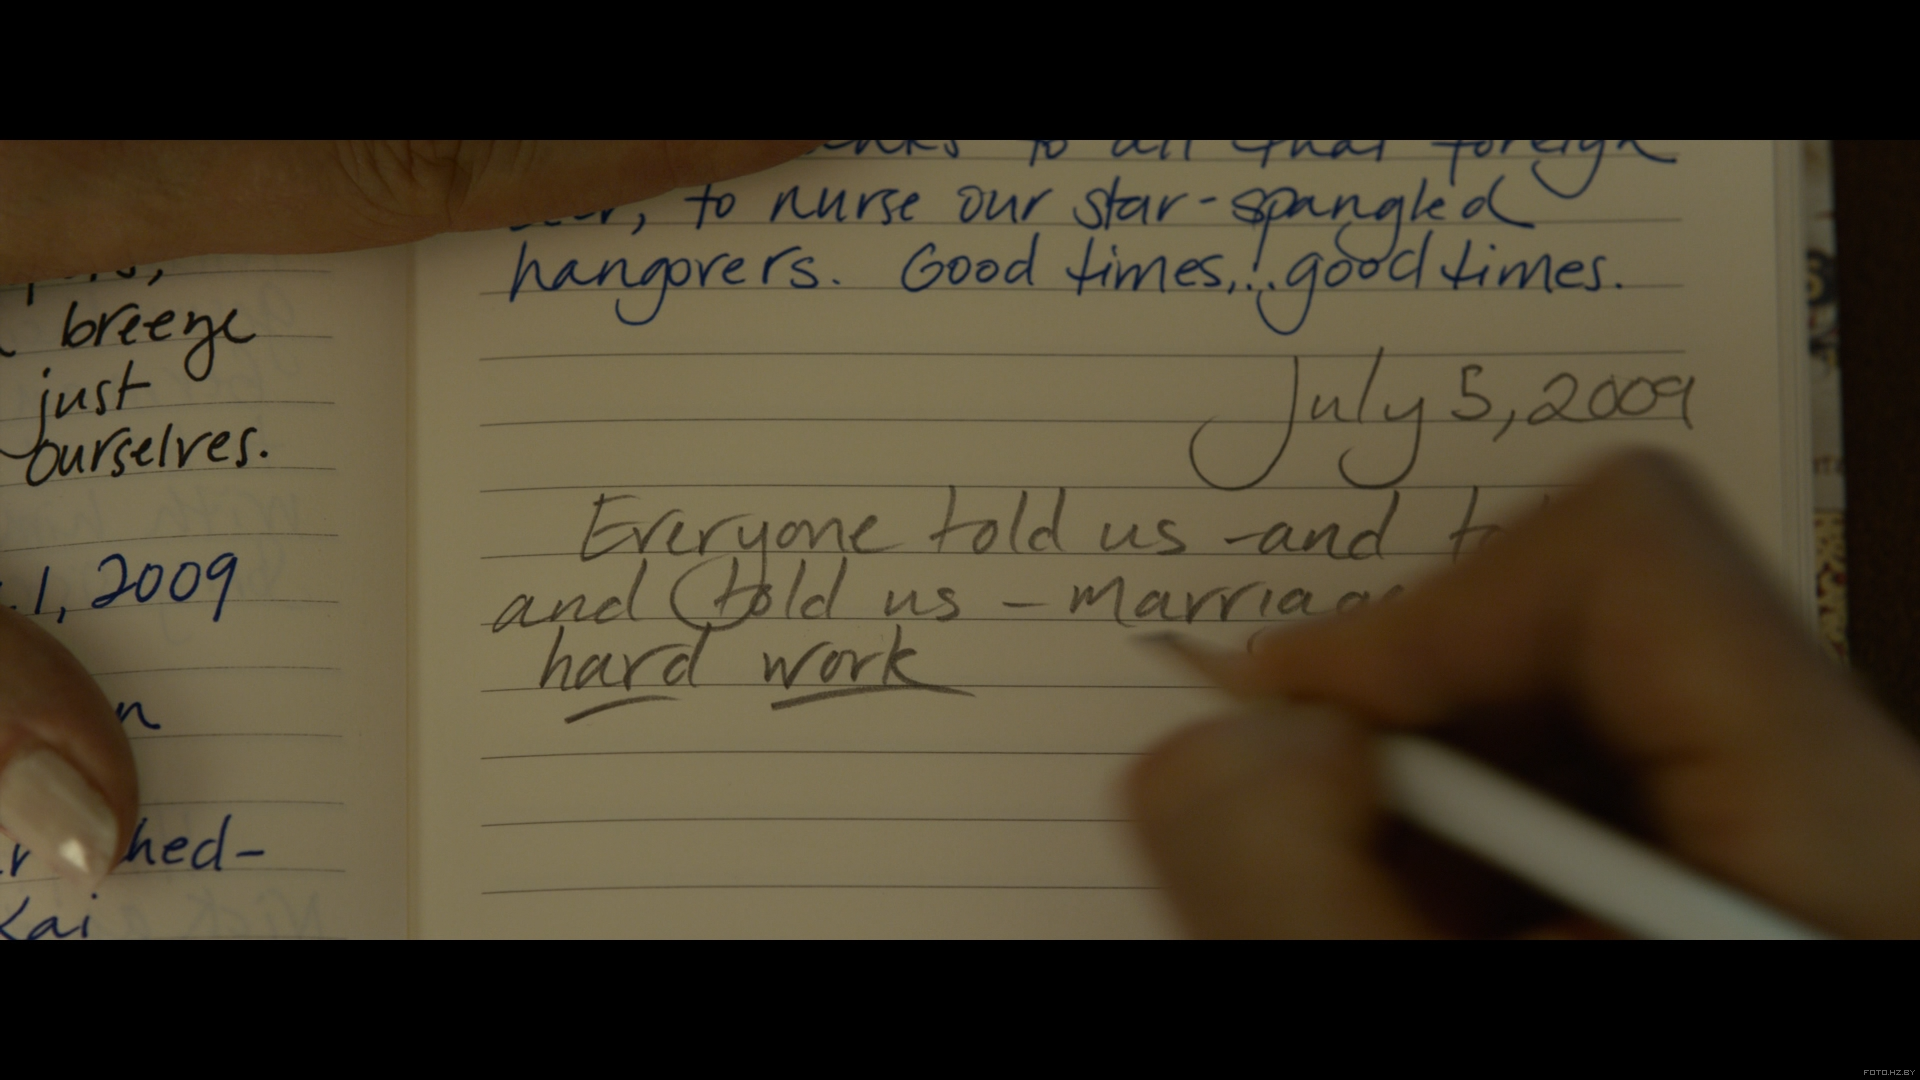 breeze
just
ourselves.
1, 2009
hed-
Kai
to all that foreign
, to nurse our star-spangled
hangovers. Good times,...good times.
July 5, 2009
Everyone told us -and
and told us - marriage
hard work
FOTO.HZ.BY